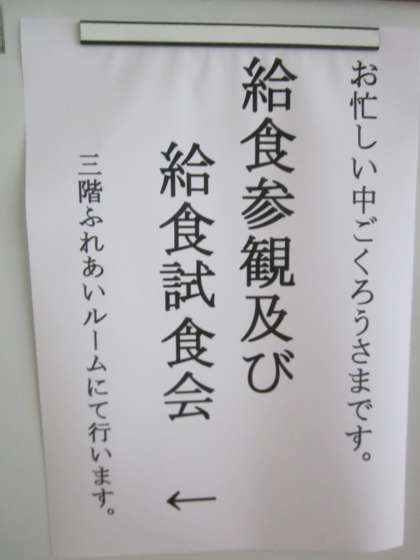 お忙しい中ごくろうさまです。
給食参観及び
給食試食会 ←
三階ふれあいルームにて行います。